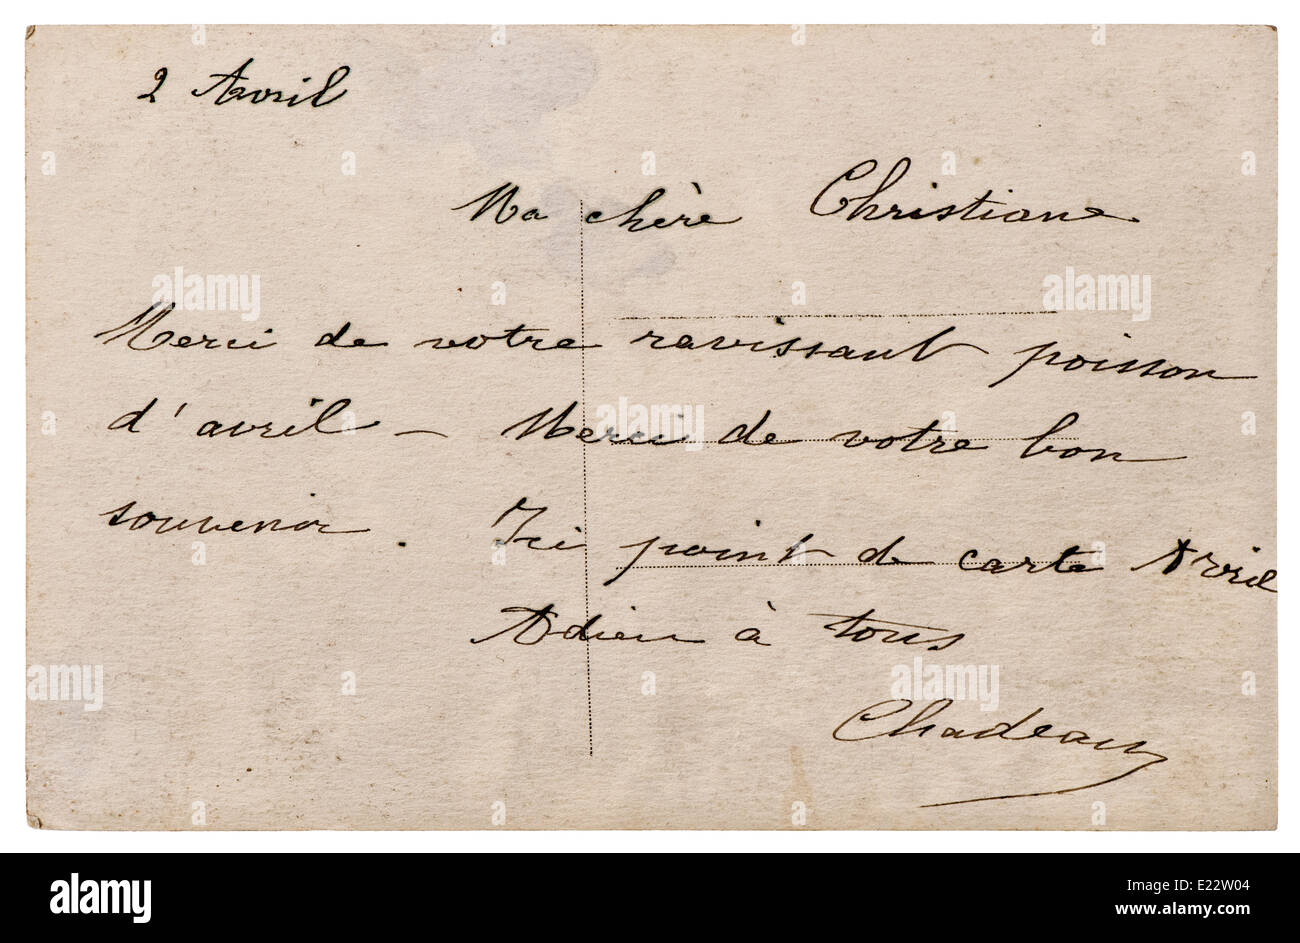 2 Avril
Ma chère Christiane
Merci de votre ravissant poisson
d'avril – Merci de votre bon
souvenir. Ici point de carte Avril
Adieu à tous
Chadeau
a alamy
alamy
Image ID: E22W04
www.alamy.com